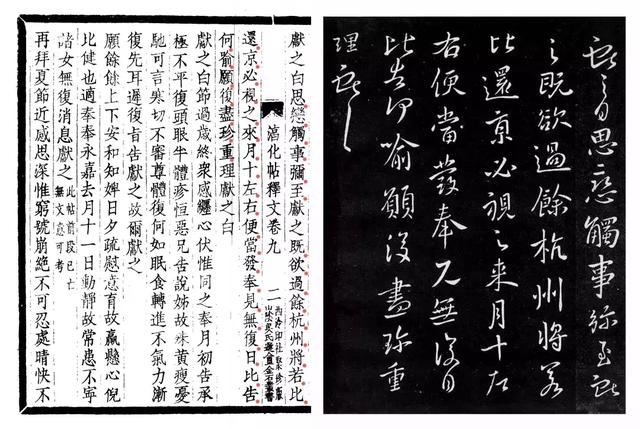 獻之白思戀觸事彌至獻
之既欲過餘杭州將若
比還京必視之來月十左
右便當發奉見無復日
比告何喻願復盡珍重
理獻之
獻之白思戀觸事彌至獻之既欲過餘杭州將若比
淳化帖釋文卷九
二
西泠印社聚珍版
山陰吳氏遯盦金石叢書
還京必視之來月十左右便當發奉見無復日比告
何喻願復盡珍重理獻之白
獻之白節過歲終衆感纏心伏惟同之奉月初告承
極不平復頭眼半體疼恒惡兄告說姊故殊黃瘦憂
馳可言寒切不審尊體復何如眠食轉進不氣力漸
復先耳遲復旨告獻之故爾獻之
願餘上下安和知婢日夕疏慰意育故羸懸心倪
比健也適奉奉永嘉去月十一日動靜故常患不寧
諸女無復消息獻之
此帖前段已亡
無文意可考
再拜夏節近感思深惟窮號崩絕不可忍處晴快不